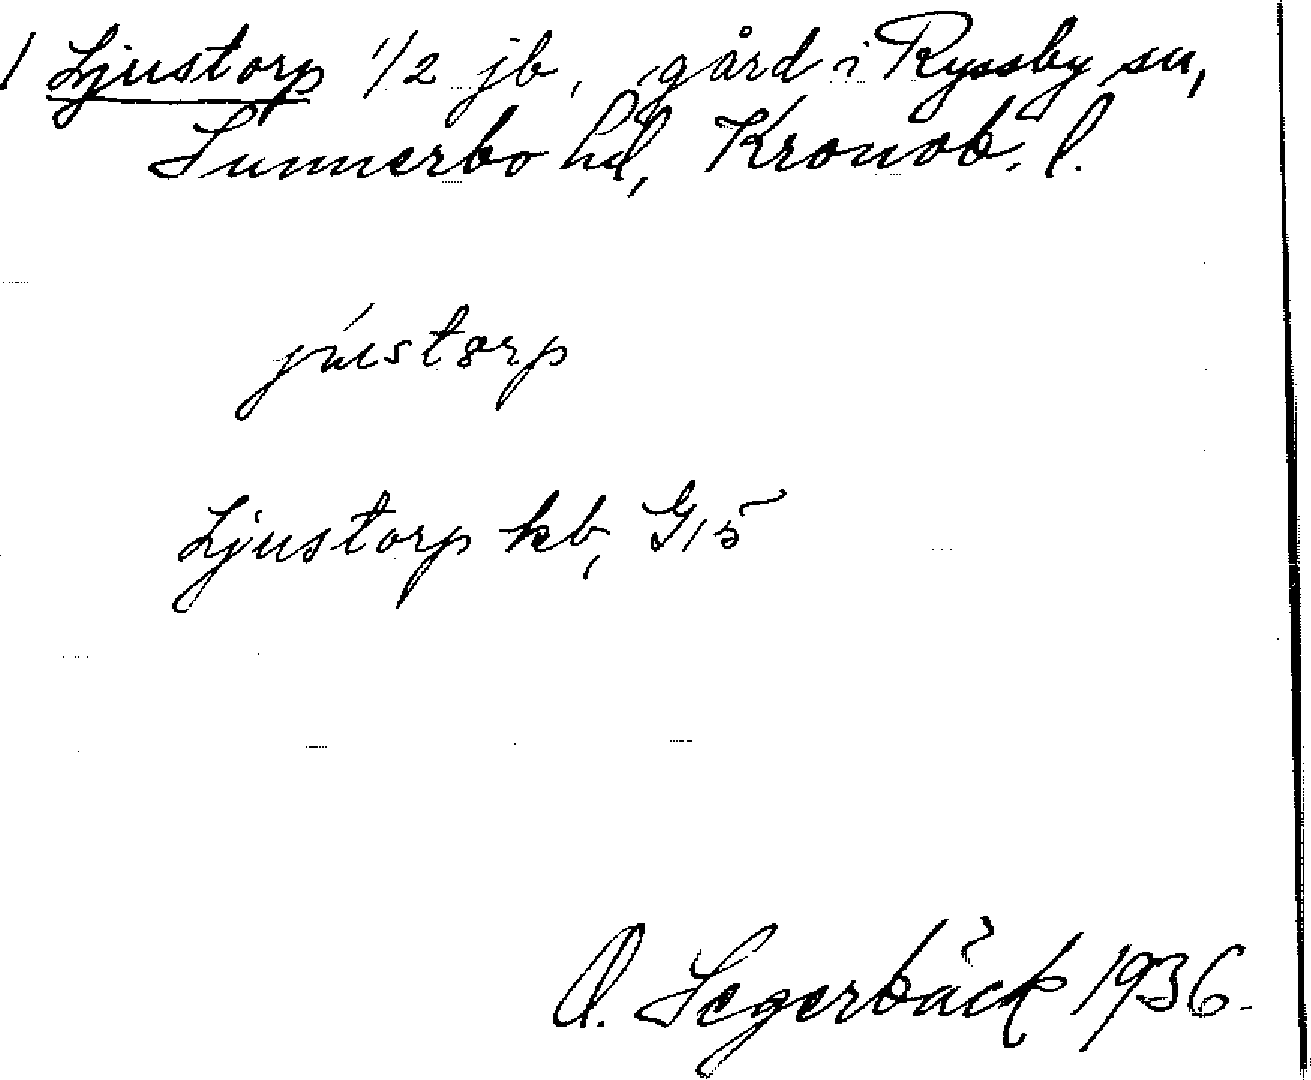 / Ljustorp 1/2 jb, gård i Ryssby sn,
Sunnerbo hd, Kronob. l.
jústorp
Ljustorp kb, G15
O. Segerbäck 1936.